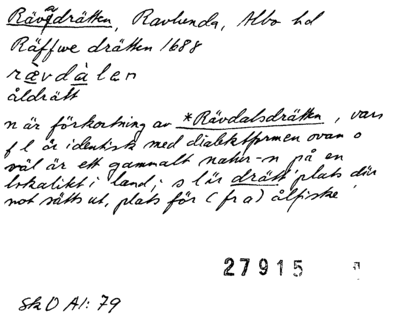 Rävadrätten, Ravlunda, Albo hd
Räffwe drätten 1688
rævdàlen
åldrätt
n är förkortning av *Rävdalsdrätten, vars
f l är identisk med dialektformen ovan o
väl är ett gammalt natur-n på en
lokalitet i land; s l är drätt 'plats där
not sätts ut, plats för (fra) ålfiske'
27915
Sk O Al: 79